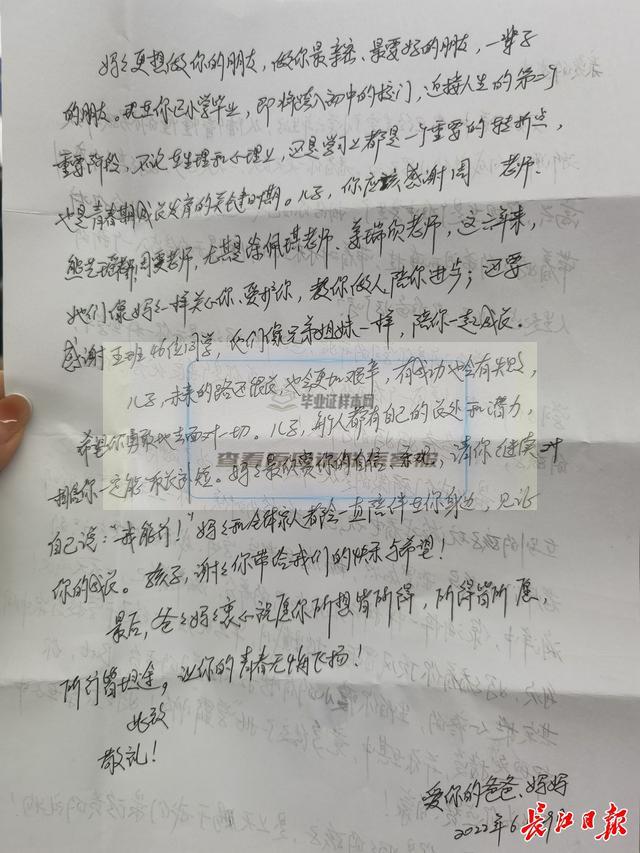 妈妈更想做你的朋友，做你最亲密、最要好的朋友，一辈子
的朋友。现在你已小学毕业，即将跨入初中的校门，迎接人生的第二个
重要阶段，不论生理和心理上，还是学习上都是一个重要的转折点，
也是青春期成长发育的关键时期。儿子，你应该感谢周 老师、
熊 老师，尤其是徐佩琪老师、姜瑞欣老师，这六年来，
她们像妈妈一样关心你、爱护你，教你做人，陪你进步；还要
感谢五班46位同学，他们像兄弟姐妹一样，陪你一起成长。
儿子，未来的路还很长，也会更加艰辛，有成功也会有失败，
希望你勇敢地去面对一切。儿子，每个人都有自己的长处和潜力，
相信你一定能扬长补短。妈妈最欣赏你的自信、 ，请你继续对
自己说：“我能行！”妈妈和全体家人都会一直陪伴在你身边，见证
你的成长。孩子，谢谢你带给我们的快乐与希望！
最后，爸爸妈妈衷心祝愿你所想皆所得，所得皆所愿，
所行皆坦途，让你的青春无悔飞扬！
此致
敬礼！
爱你的爸爸、妈妈
2022年6月
毕业证样本网
长江日报